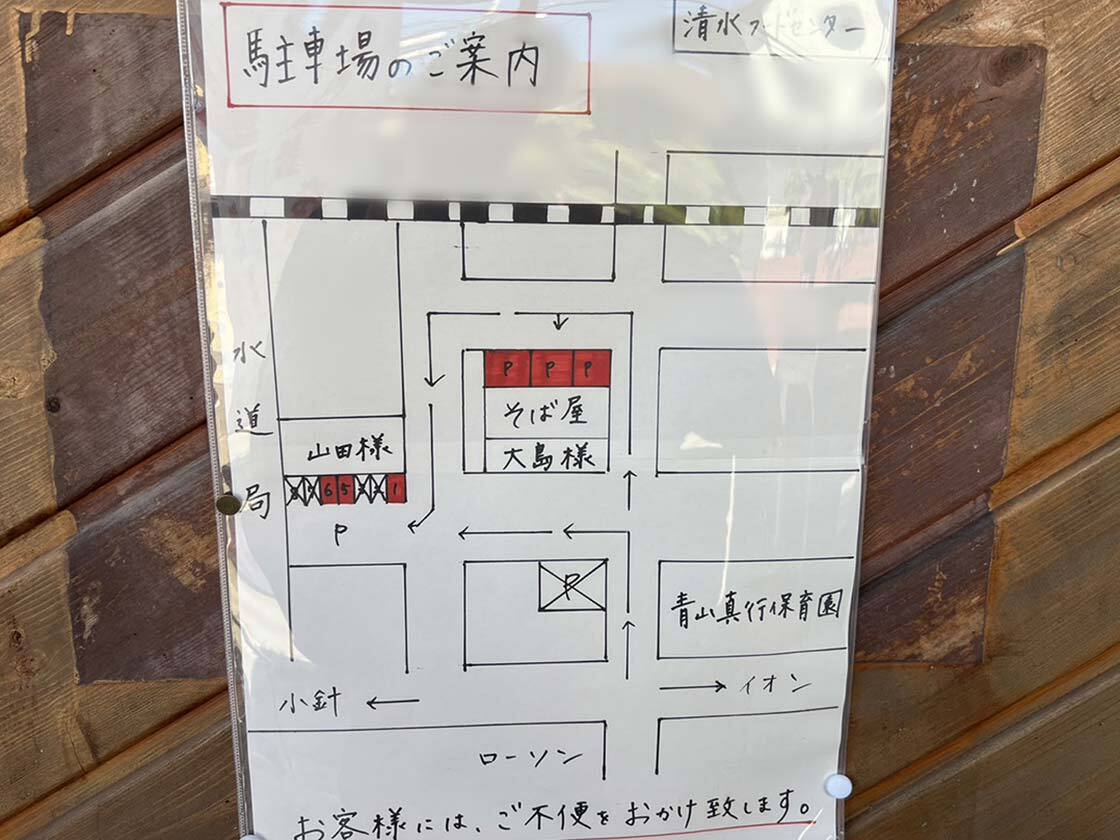 駐車場のご案内
清水フードセンター
P P P
そば屋
大島様
水道局
山田様
6 5 1
P
P
青山真行保育園
小針 ←
→ イオン
ローソン
お客様には、ご不便をおかけ致します。